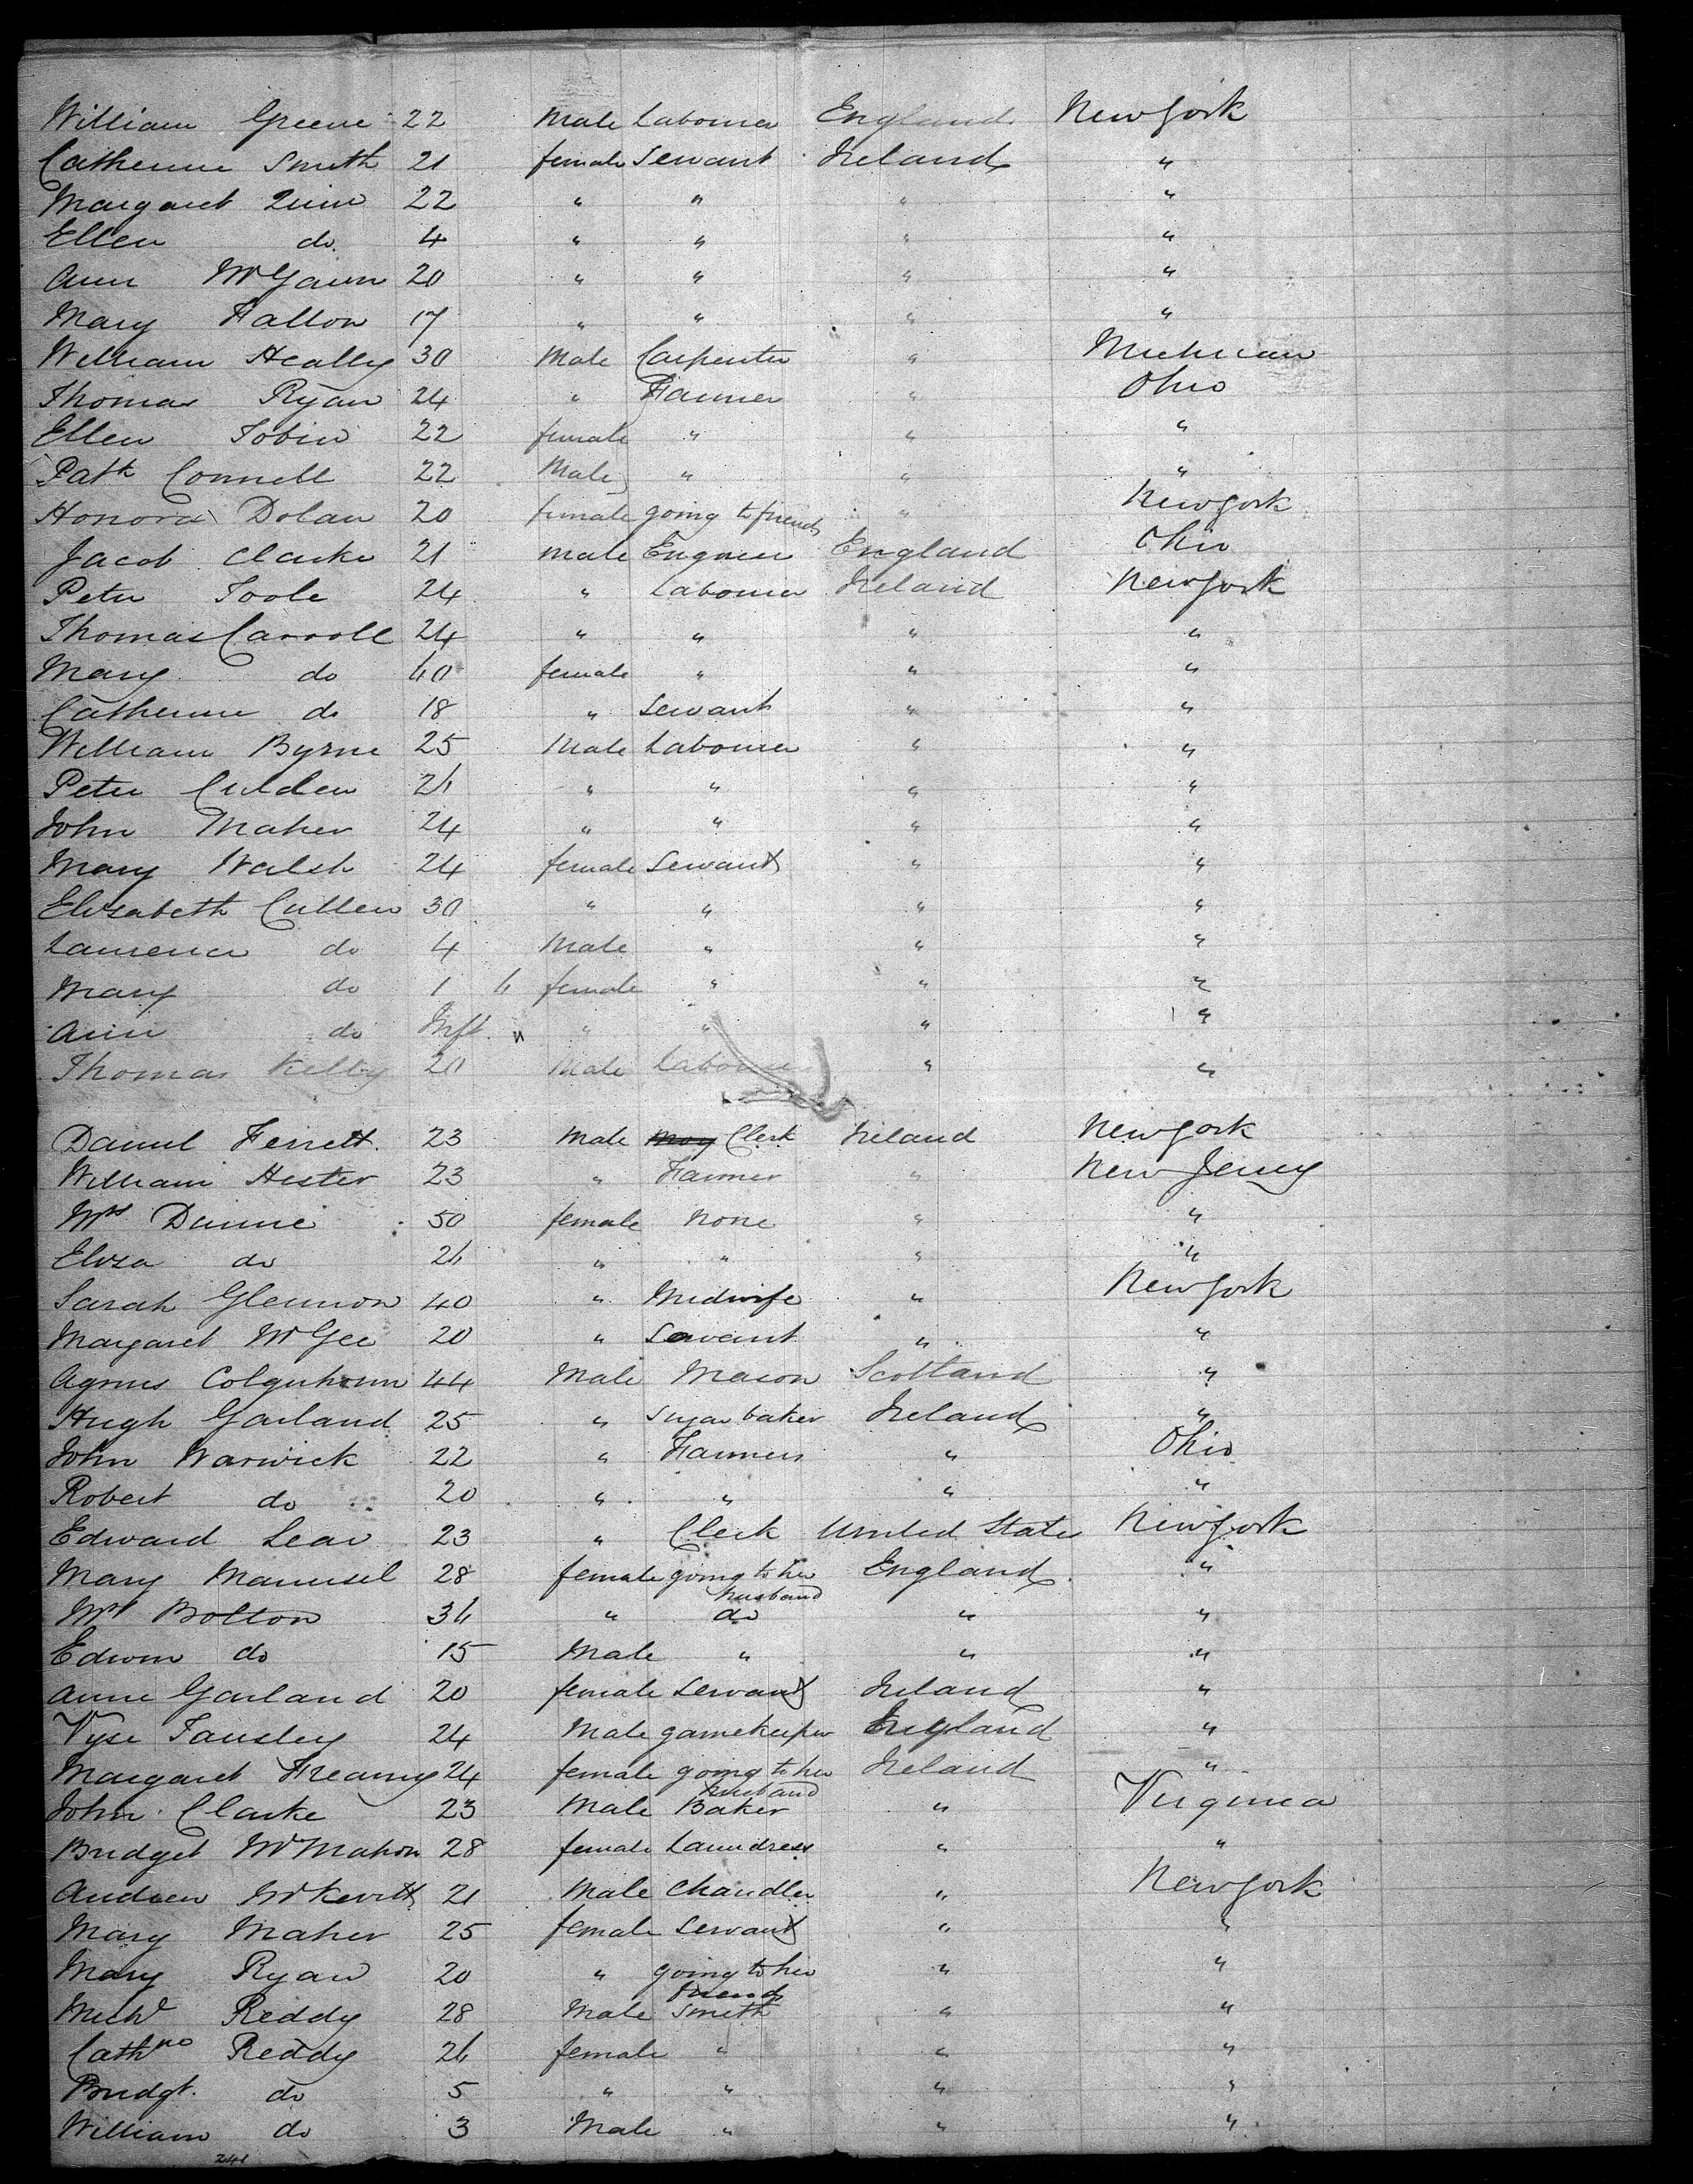 William Greene 22 Male Labourer England New York
Catherine Smith 21 female Servant Ireland "
Margaret Quin 22 " " " "
Ellen do. 4 " " " "
Ann McGawn 20 " " " "
Mary Fallon 17 " " " "
William Healley 30 Male Carpenter " Michican
Thomas Ryan 24 " Farmer " Ohio
Ellen Tobin 22 female " " "
Patk Connell 22 Male " " "
Honora Dolan 20 female going to friends " New York
Jacob Clarke 21 male Engineer England Ohio
Peter Toole 24 " Labourer Ireland New York
Thomas Carroll 24 " " " "
Mary do 40 female " " "
Catherine do 18 " Servant " "
William Byrne 25 Male Labourer " "
Peter Culden 26 " " " "
John Maher 24 " " " "
Mary Walsh 24 female Servant " "
Elizabeth Cullen 30 " " " "
Laurence do 4 Male " " "
Mary do 1 6 female " " "
Ann do Inft. " " " "
Thomas Kelly 20 Male Labourer " "
Daniel Ferrett. 23 Male Clerk Ireland New York
William Hester 23 " Farmer " New Jersey
Mrs Dunne 50 female None " "
Eliza do 26 " " " "
Sarah Glennon 40 " Midwife " New York
Margaret McGee 20 " Servant " "
Agnus Colquhoun 44 Male Mason Scotland "
Hugh Garland 25 " Sugar baker Ireland "
John Warwick 22 " Farmers " Ohio
Robert do 20 " " " "
Edward Lear 23 " Clerk United States New York
Mary Maunsel 28 female going to her England "
husband
Mrs Bolton 36 " do " "
Edwin do 15 Male " " "
Anne Garland 20 female Servant Ireland "
Vyse Tansley 24 Male gamekeeper England "
Margaret Freamy 24 female going to her Ireland "
husband
John Clarke 23 Male Baker " Virginia
Bridget McMahon 28 female Laundress " "
Andrew McKevitt 21 Male Chandler " New York
Mary Maher 25 female Servant " "
Mary Ryan 20 " going to her " "
friends
Michl Reddy 28 Male Smith " "
Cathne Reddy 26 female " " "
Bridgt. do 5 " " " "
William do 3 Male " " "
241